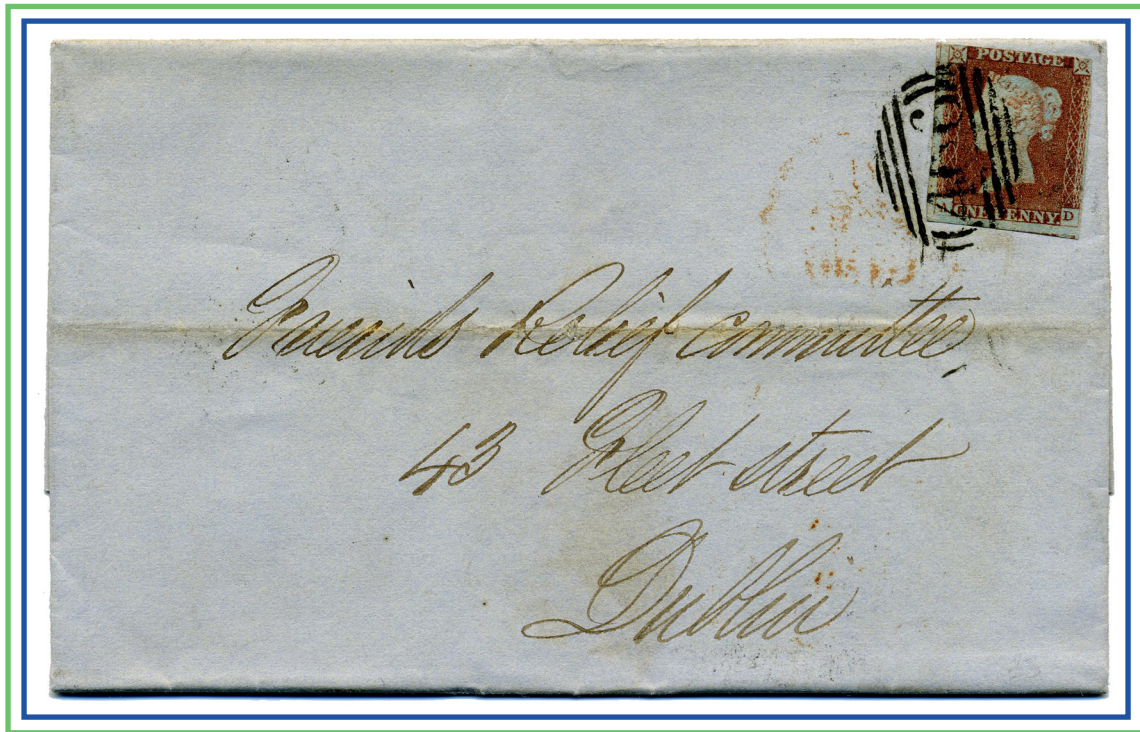 POSTAGE
ONE PENNY D
Friends Relief committee,
43 Fleet street
Dublin